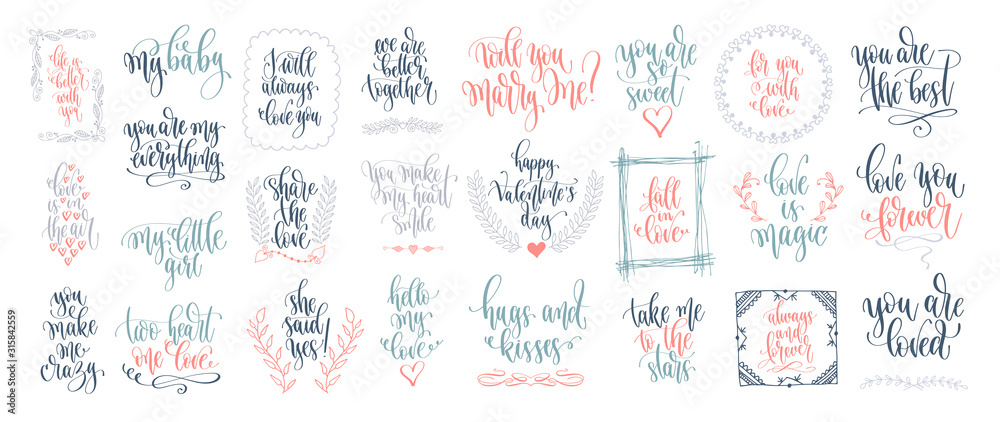 life is
better
with
you
my baby
I will
always
love you
we are
better
together
will you
Marry Me?
you are
so
sweet
for you
with
love
you are
the best
you are my
everything
love
is in
the air
share
the
love
You make
my heart
smile
happy
Valentine's
day
fall
in
love
love
is
magic
love you
forever
my little
girl
you
make
me
crazy
two heart
one love
she
said
yes!
hello
my
love
hugs and
kisses
take me
to the
stars
always
and
forever
you are
loved
Adobe Stock | #315842559